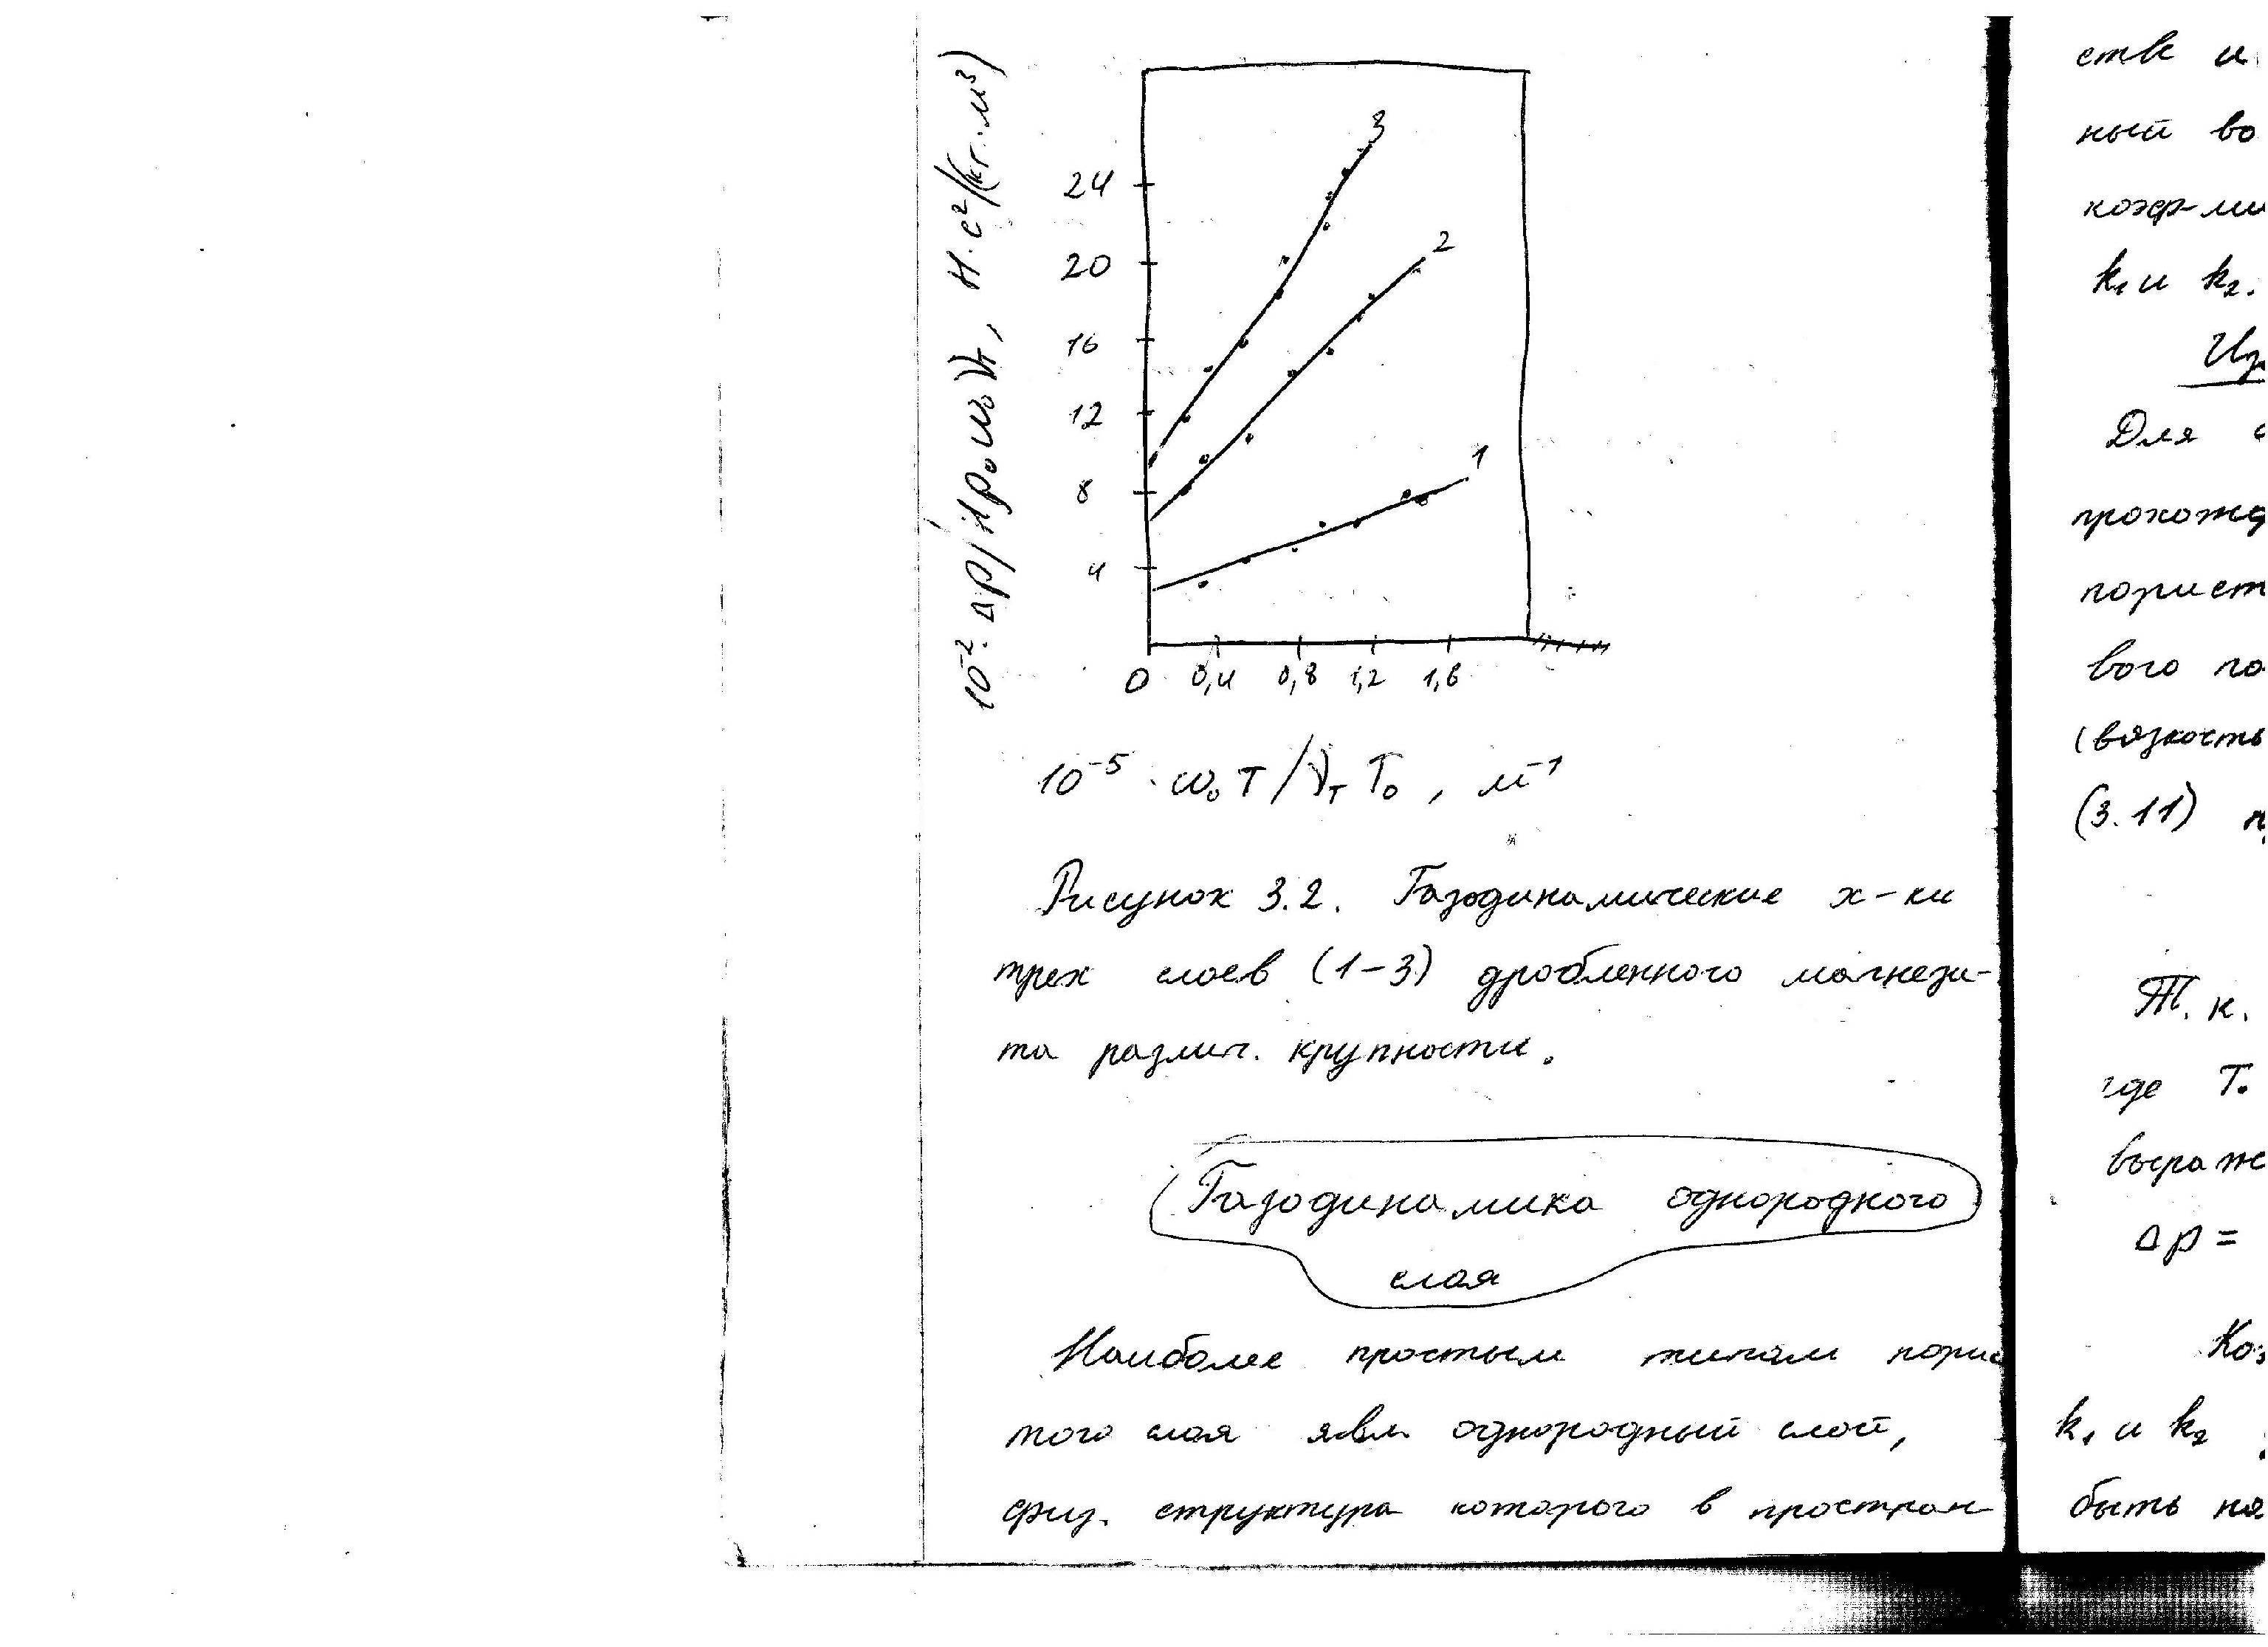 10⁻² · Δp/(ρ₀w₀)νт, Н·с²/(кг·м³)
3
24
2
20
16
12
1
8
4
0 0,4 0,8 1,2 1,6
10⁻⁵ · w₀T/νт T₀, м⁻¹
Рисунок 3.2. Газодинамические х-ки
трех слоев (1-3) дробленного магнези-
та различ. крупности.
Газодинамика однородного
слоя
Наиболее простым типом порис
того слоя явл. однородный слой,
физ. структура которого в простран-
ств и
ный во
коэф-ми
k₁ и k₂.
Для
прохожд
порист
вого по
(вязкость
(3.11)
Т.к.
где T₀
выраж
Δp =
k₁ и k₂
быть